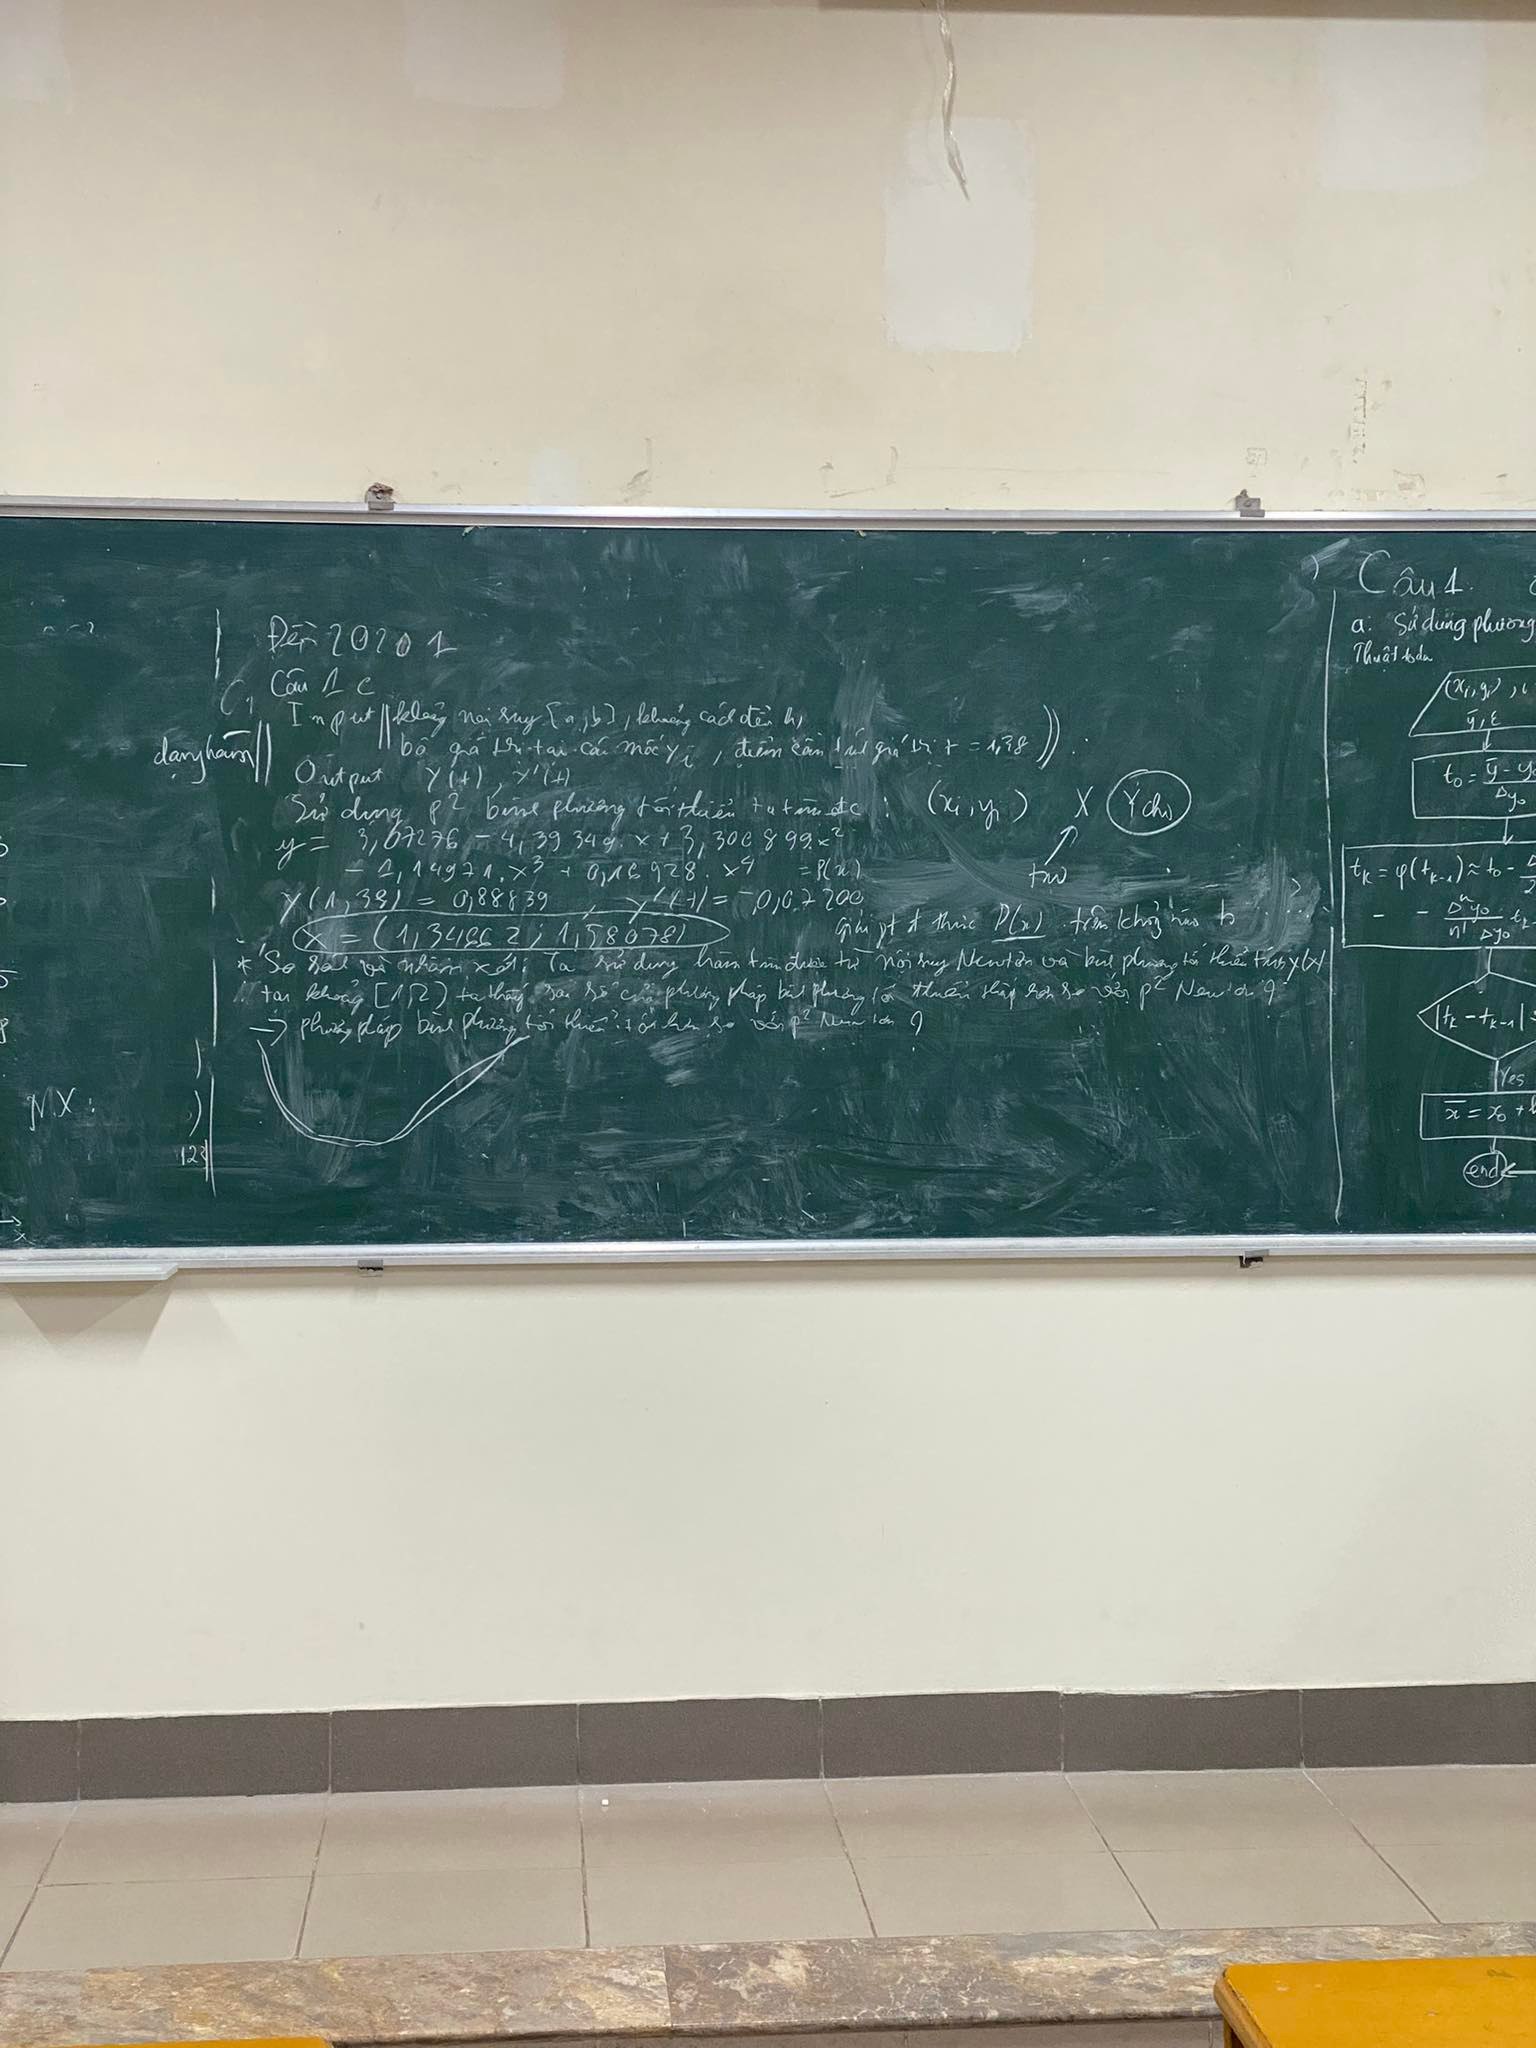 Đến 20201
Câu 1 c
C1
Input khoảng nội suy [a,b], khoảng cách đều h,
bộ giá trị tại các mốc yi, điểm cần tính giá trị t = 1,38
dạng hàm
Output Y(t), Y'(t)
Sử dụng p² bình phương tối thiểu ta tìm đc : (xi, yi) X Ý cho
y = 3,07276 - 4,39349.x + 3,306899.x²
- 1,14971.x³ + 0,16928 x⁴ = P(x)
tìm
y(1,38) = 0,88839, y'(t) = -0,07200
giải pt đ thức P(x) trên khoảng nào
x = (1,34662; 1,58078)
* So sánh và nhận xét: Ta sử dụng hàm tìm được từ nội suy Newton và bình phương tối thiểu tính y(x)
tại khoảng [1,2) ta thấy sai số của phương pháp bình phương tối thiểu thấp hơn so với p² Newton
→ phương pháp bình phương tối thiểu tốt hơn so với p² Newton
NX:
123
x
Câu 1.
a: Sử dụng phương
Thuật toán
(xi, yi),
ȳ, ε
t₀ = ȳ - y₀ / Δy₀
tk = φ(tk-1) ≈ t₀ -
- - Δⁿy₀ / n! Δy₀
|tk - tk-1|
Yes
x̄ = x₀ +
end